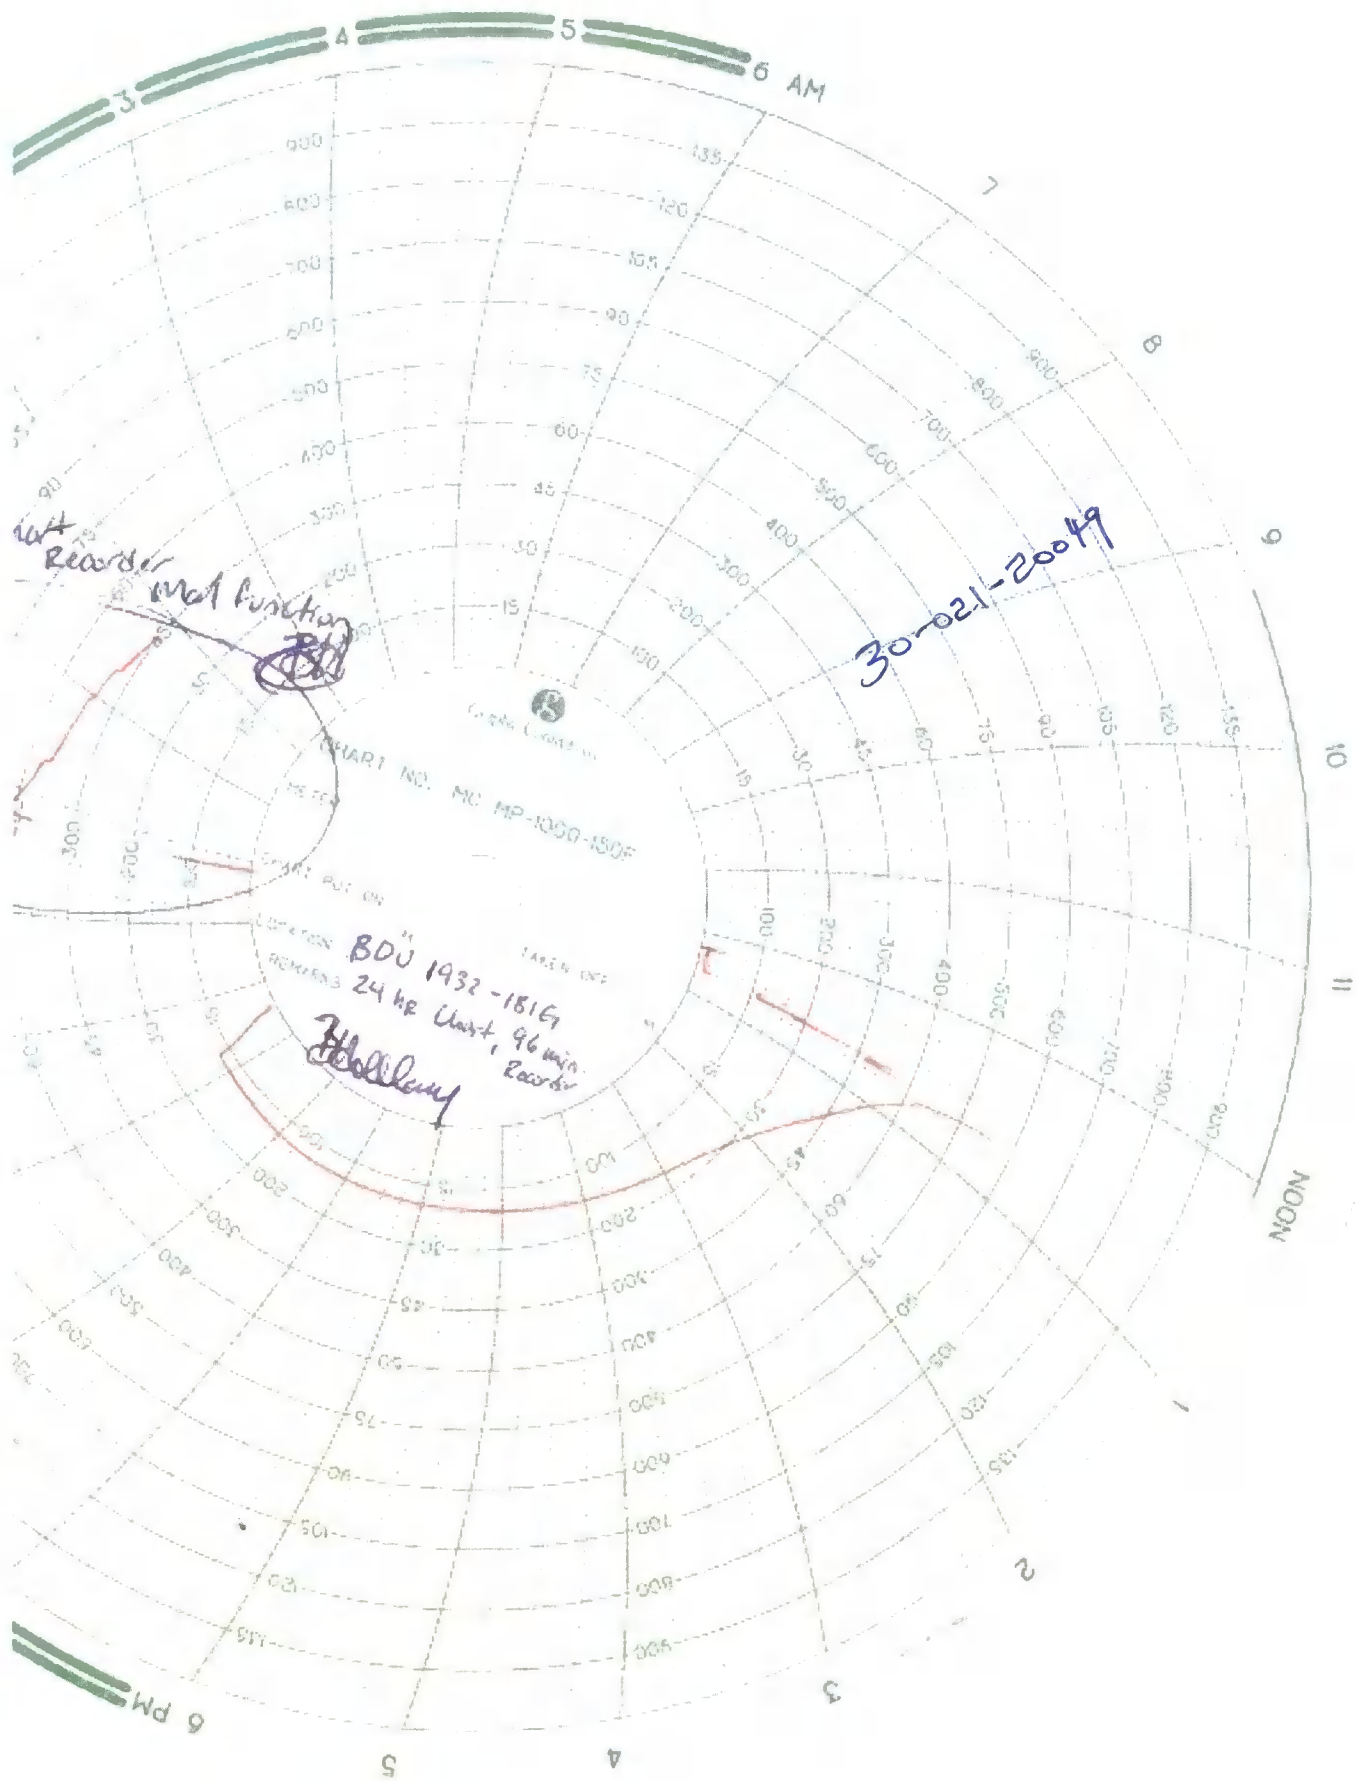 3
4
5
6 AM
7
8
9
10
11
NOON
1
2
3
4
5
6 PM
900
800
700
600
500
400
300
200
135
120
105
90
75
60
45
30
15
900
800
700
600
500
400
300
200
100
135
120
105
90
75
60
45
30
15
100
200
300
400
500
600
700
800
900
15
30
45
60
75
90
105
120
135
100
200
300
400
500
600
700
800
900
15
30
45
60
75
90
105
120
135
100
200
300
400
500
600
90
300
200
Recorder
Malfunction
30-021-20049
Graphic Controls
CHART NO. MC MP-1000-150F
METER
CHART PUT ON
TAKEN OFF
LOCATION BDU 1932-181G
REMARKS 24 HR Chart, 96 min
Recorder